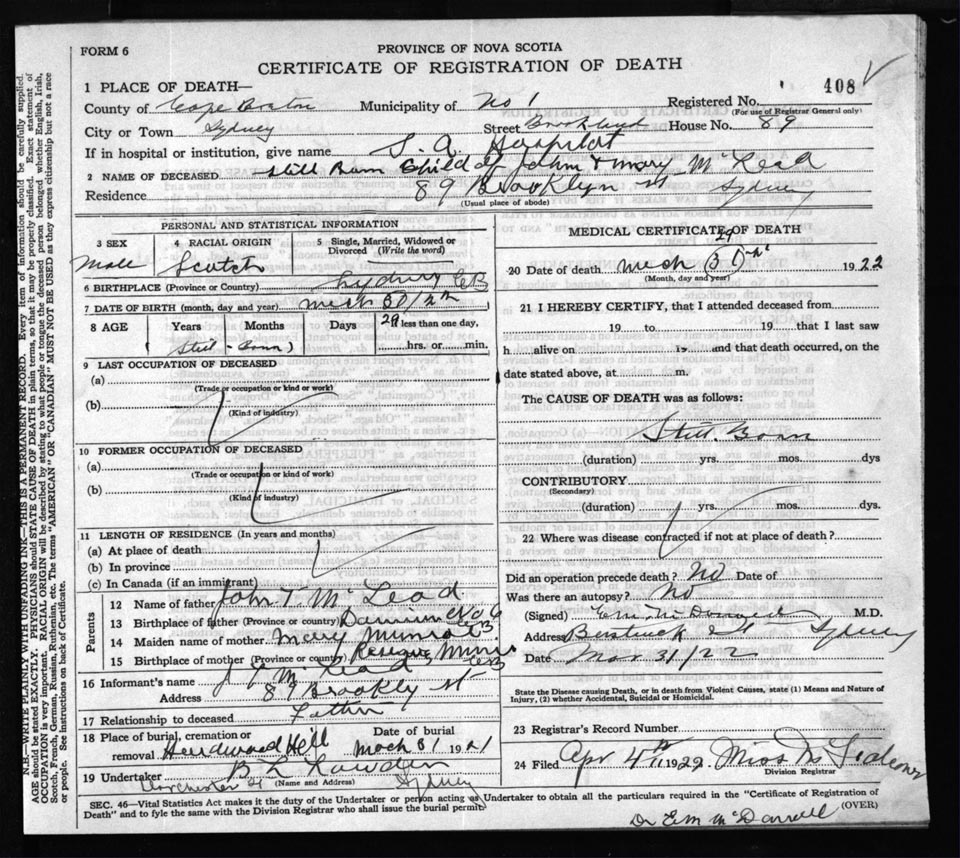 FORM 6
PROVINCE OF NOVA SCOTIA
CERTIFICATE OF REGISTRATION OF DEATH
408
1 PLACE OF DEATH—
County of Cape Breton Municipality of No 1 Registered No.
(For use of Registrar General only)
City or Town Sydney Street House No. 89
If in hospital or institution, give name S. A. Hospital
2 NAME OF DECEASED Still Born Child of John & Mary McLeod
Residence 89 Brooklyn st Sydney
(Usual place of abode)
PERSONAL AND STATISTICAL INFORMATION
3 SEX 4 RACIAL ORIGIN 5 Single, Married, Widowed or Divorced (Write the word)
Male Scotch
6 BIRTHPLACE (Province or Country) Sydney CB
7 DATE OF BIRTH (month, day and year)
8 AGE Years Months Days 29 If less than one day,
Still-Born hrs. or min.
9 LAST OCCUPATION OF DECEASED
(a)
(Trade or occupation or kind or work)
(b)
(Kind of industry)
10 FORMER OCCUPATION OF DECEASED
(a)
(Trade or occupation or kind of work)
(b)
(Kind of industry)
11 LENGTH OF RESIDENCE (In years and months)
(a) At place of death
(b) In province
(c) In Canada (if an immigrant)
Parents
12 Name of father John T. McLeod
13 Birthplace of father (Province or country) CB
14 Maiden name of mother Mary Munro
15 Birthplace of mother (Province or country) CB
16 Informant's name J T McLeod
Address 89 Brookly st
17 Relationship to deceased Father
18 Place of burial, cremation or removal Hardwood Hill Date of burial March 31 1921
19 Undertaker
Dorchester St Sydney
MEDICAL CERTIFICATE OF DEATH
29
20 Date of death 1922
(Month, day and year)
21 I HEREBY CERTIFY, that I attended deceased from
19 to 19 that I last saw
h alive on 19 and that death occurred, on the
date stated above, at m.
The CAUSE OF DEATH was as follows:
Still Born
(duration) yrs. mos. dys
CONTRIBUTORY
(Secondary)
(duration) yrs. mos. dys.
22 Where was disease contracted if not at place of death?
Did an operation precede death? No Date of
Was there an autopsy? No
(Signed) M.D.
Address Sydney
Date Mar 31/22
State the Disease causing Death, or in death from Violent Causes, state (1) Means and Nature of
Injury, (2) whether Accidental, Suicidal or Homicidal.
23 Registrar's Record Number
24 Filed Apr 4th 1922 Miss
Division Registrar
SEC. 46—Vital Statistics Act makes it the duty of the Undertaker or person acting as Undertaker to obtain all the particulars required in the "Certificate of Registration of
Death" and to fyle the same with the Division Registrar who shall issue the burial permit. (OVER)
N.B.—WRITE PLAINLY WITH UNFADING INK—THIS IS A PERMANENT RECORD. Every item of information should be carefully supplied.
AGE should be stated EXACTLY. PHYSICIANS should STATE CAUSE OF DEATH in plain terms, so that it may be properly classified. Exact statement of
OCCUPATION is very important. RACIAL ORIGIN will be described by stating to what people or tongue the deceased person belonged whether English, Irish,
Scotch, French, German, Russian, Ruthenian, etc. The terms "AMERICAN" or "CANADIAN" MUST NOT BE USED as they express citizenship but not a race
or people. See instructions on back of Certificate.